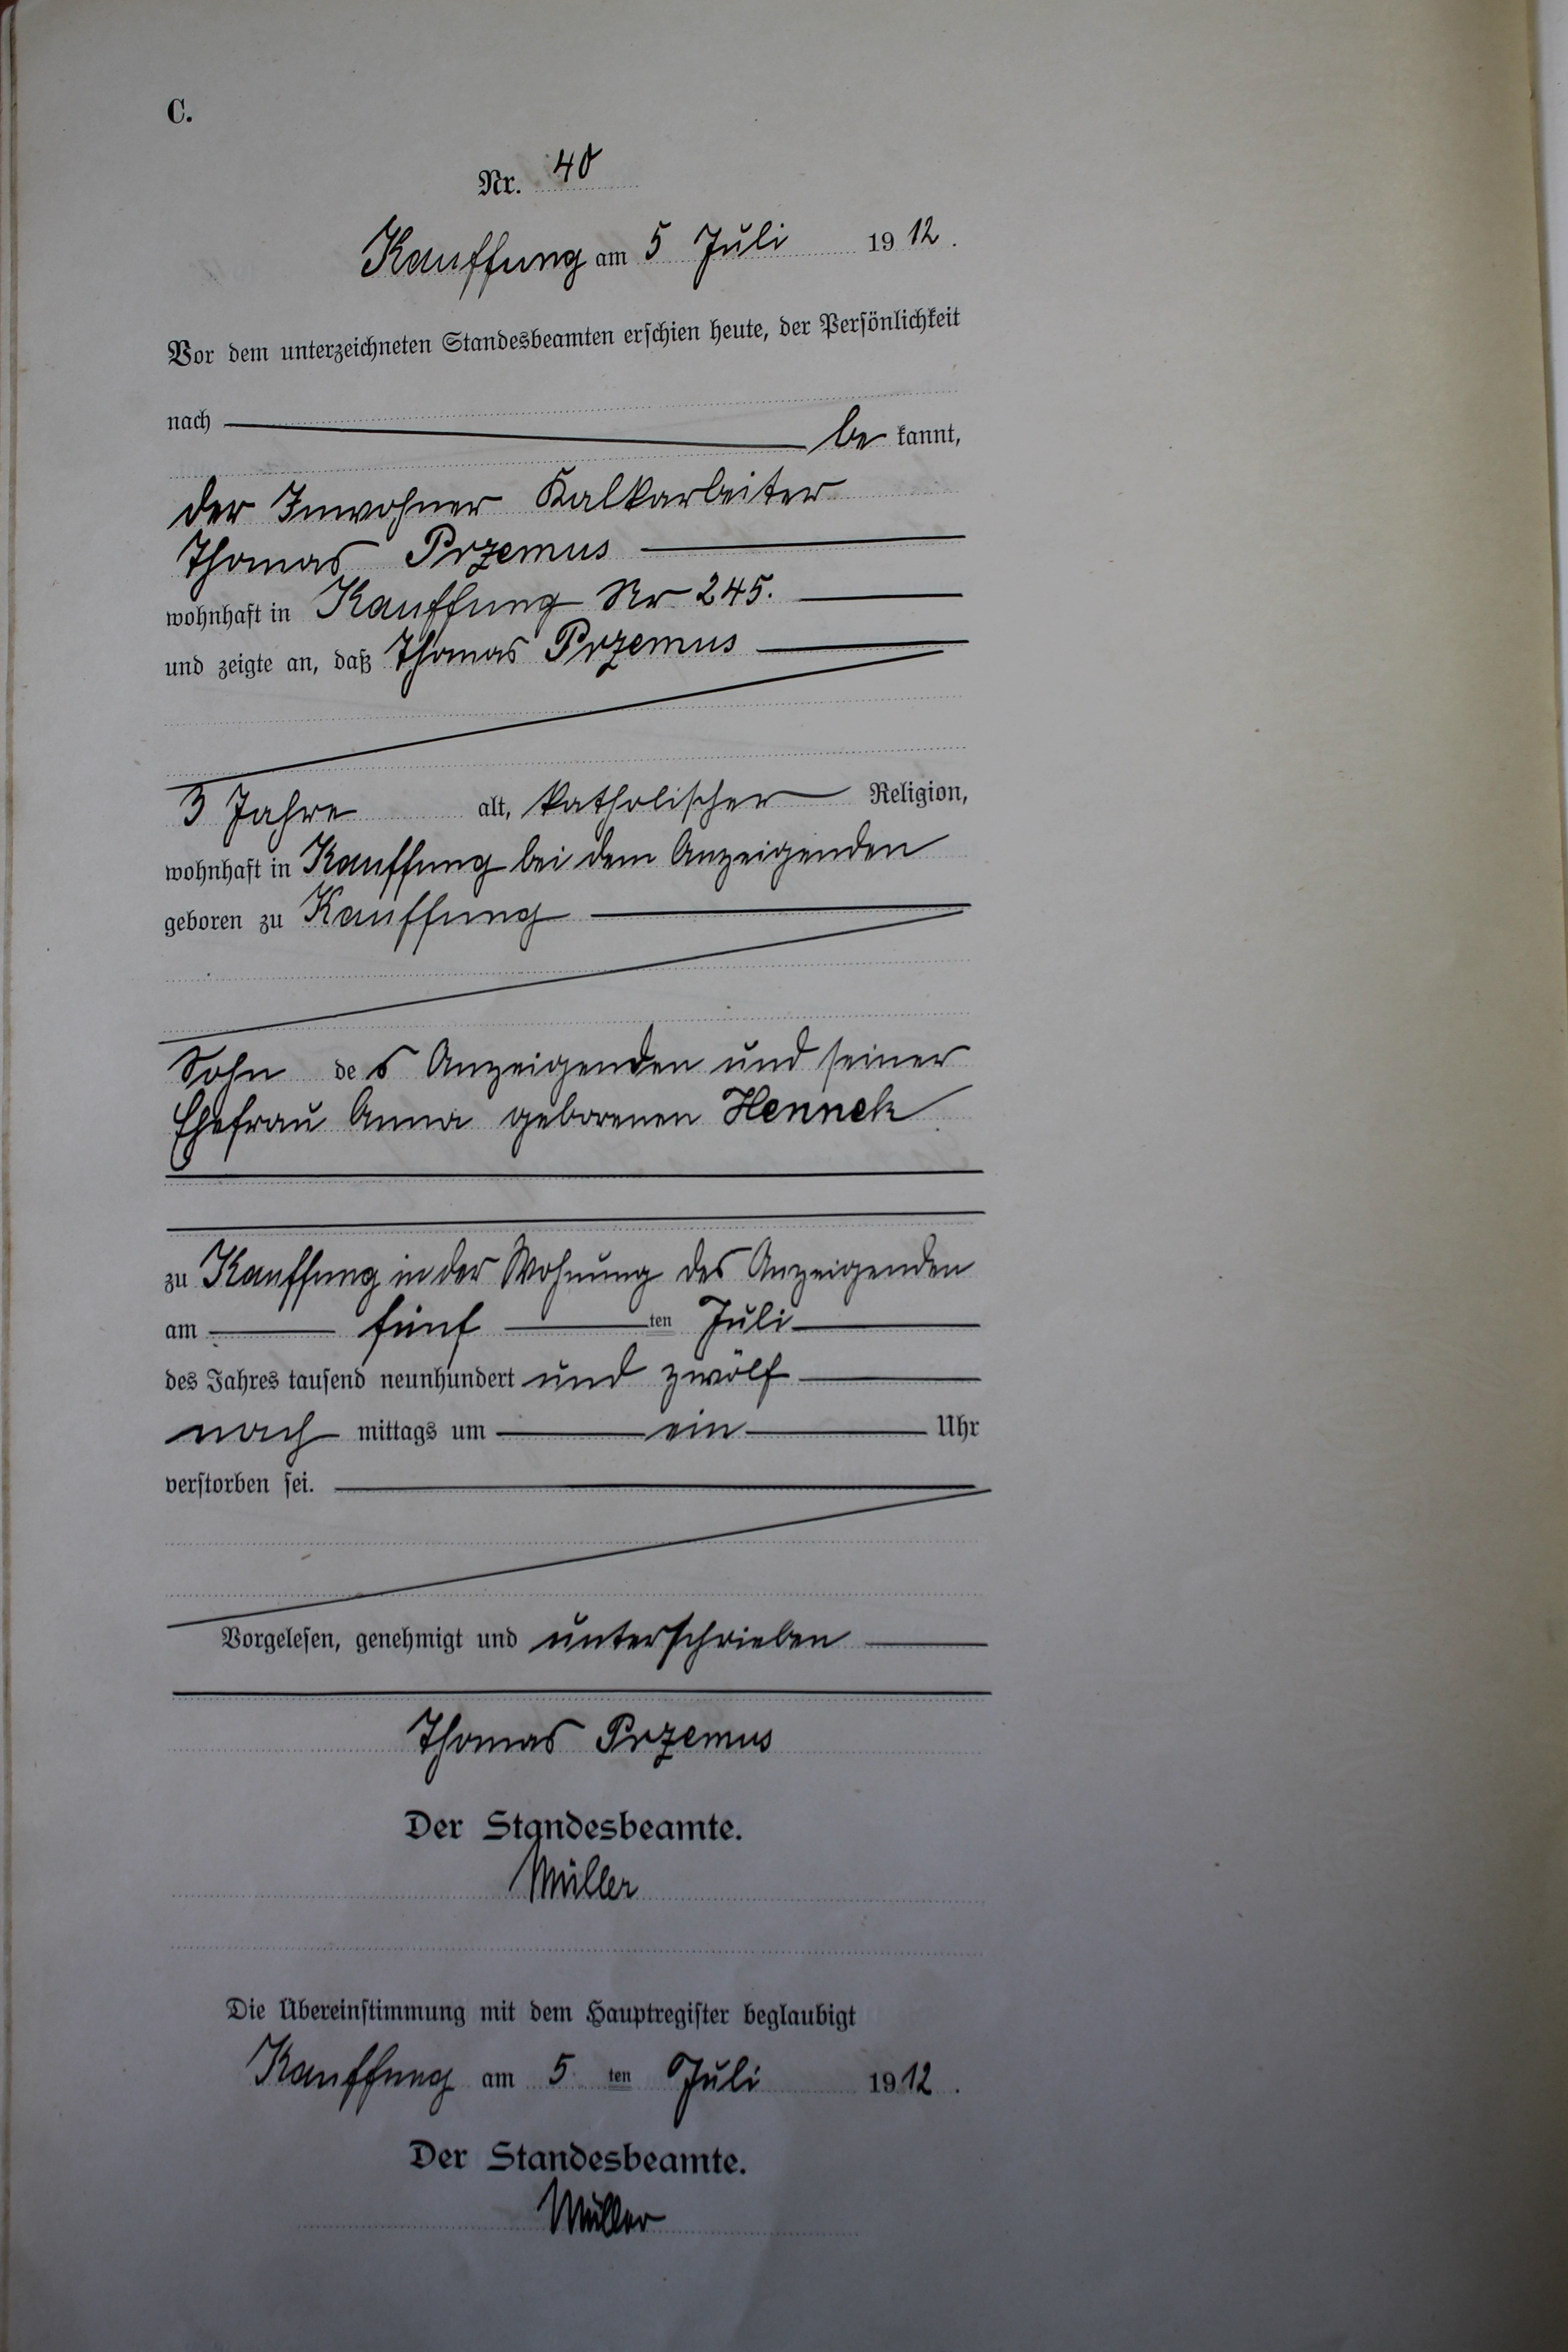 C.
Nr. 40
Kauffung am 5 Juli 1912.
Vor dem unterzeichneten Standesbeamten erschien heute, der Persönlichkeit
nach be kannt,
der Inwohner Kalkarbeiter
Thomas Przemus
wohnhaft in Kauffung Nr 245.
und zeigte an, daß Thomas Przemus
3 Jahre alt, katholischer Religion,
wohnhaft in Kauffung bei dem Anzeigenden
geboren zu Kauffung
Sohn des Anzeigenden und seiner
Ehefrau Anna geborenen Hennek
zu Kauffung in der Wohnung des Anzeigenden
am fünf ten Juli
des Jahres tausend neunhundert und zwölf
nach mittags um ein Uhr
verstorben sei.
Vorgelesen, genehmigt und unterschrieben
Thomas Przemus
Der Standesbeamte.
Müller
Die Übereinstimmung mit dem Hauptregister beglaubigt
Kauffung am 5 ten Juli 1912.
Der Standesbeamte.
Müller